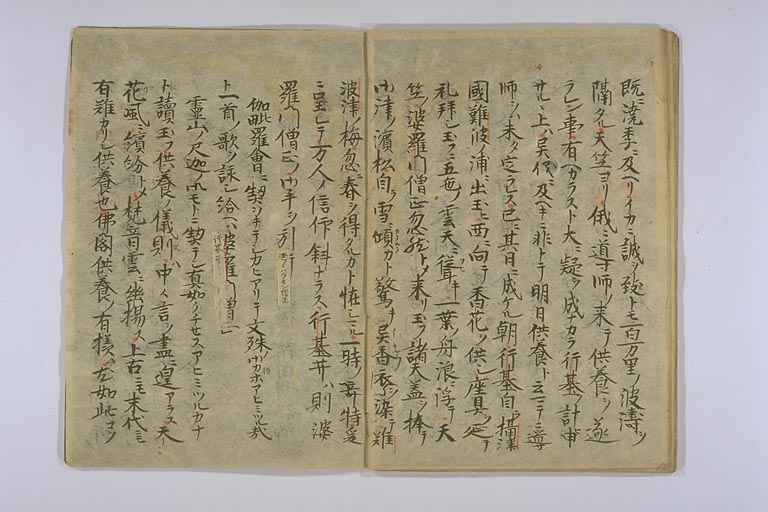 既ニ澆季ニ及ヘリイカニ誠ヲ致トモ百万里ノ波濤ヲ
隔タル天竺ヨリ俄ニ導師ノ来テ供養ヲ遂
ラレン事有ヘカラスト大ニ疑ヲ成ナカラ行基ノ計申
サルヽ上ハ異儀ニ及ヘキニ非トテ明日供養ト云マテニ導
師ハ未タ定ラレス已ニ其日ニ成ケル朝行基自摂津
國難波ノ浦ニ出玉ヒ西ニ向テ香花ヲ供シ座具ヲ延テ
礼拝シ玉フニ五色ノ雲天ニ聳テ一葉ノ舟浪ニ浮テ天
竺ノ波羅門僧正忽然トメ来リ玉フ諸天盖ヲ捧テ
御津ノ濱松自ラ雪ニ傾カト驚キ異香衣ニ染テ難
波津梅忽ニ春ヲ得タルカト怪シマル一時ノ奇特爰
ニ呈レテ万人ノ信仰斜ナラス行基井則婆
羅門僧正ノ御手ヲ引テ
伽毗羅會ニ契シチキリカヒアリテ文殊ノ御カホアヒミツル哉
ト一首ノ歌ヲ詠シ給ヘハ婆羅門僧正
霊山ノ尺迦ノミモトニ契テシ真如クチセスアヒミツルカナ
ト讀玉フ供養ノ儀則ハ中々言ヲ盡ニ遑アラス天
花風ニ繽紛トメ梵音雲ニ悠揚ス上古ニモ末代ニモ
有難カリシ供養也佛閣供養ノ有様ハ尤如此コソ